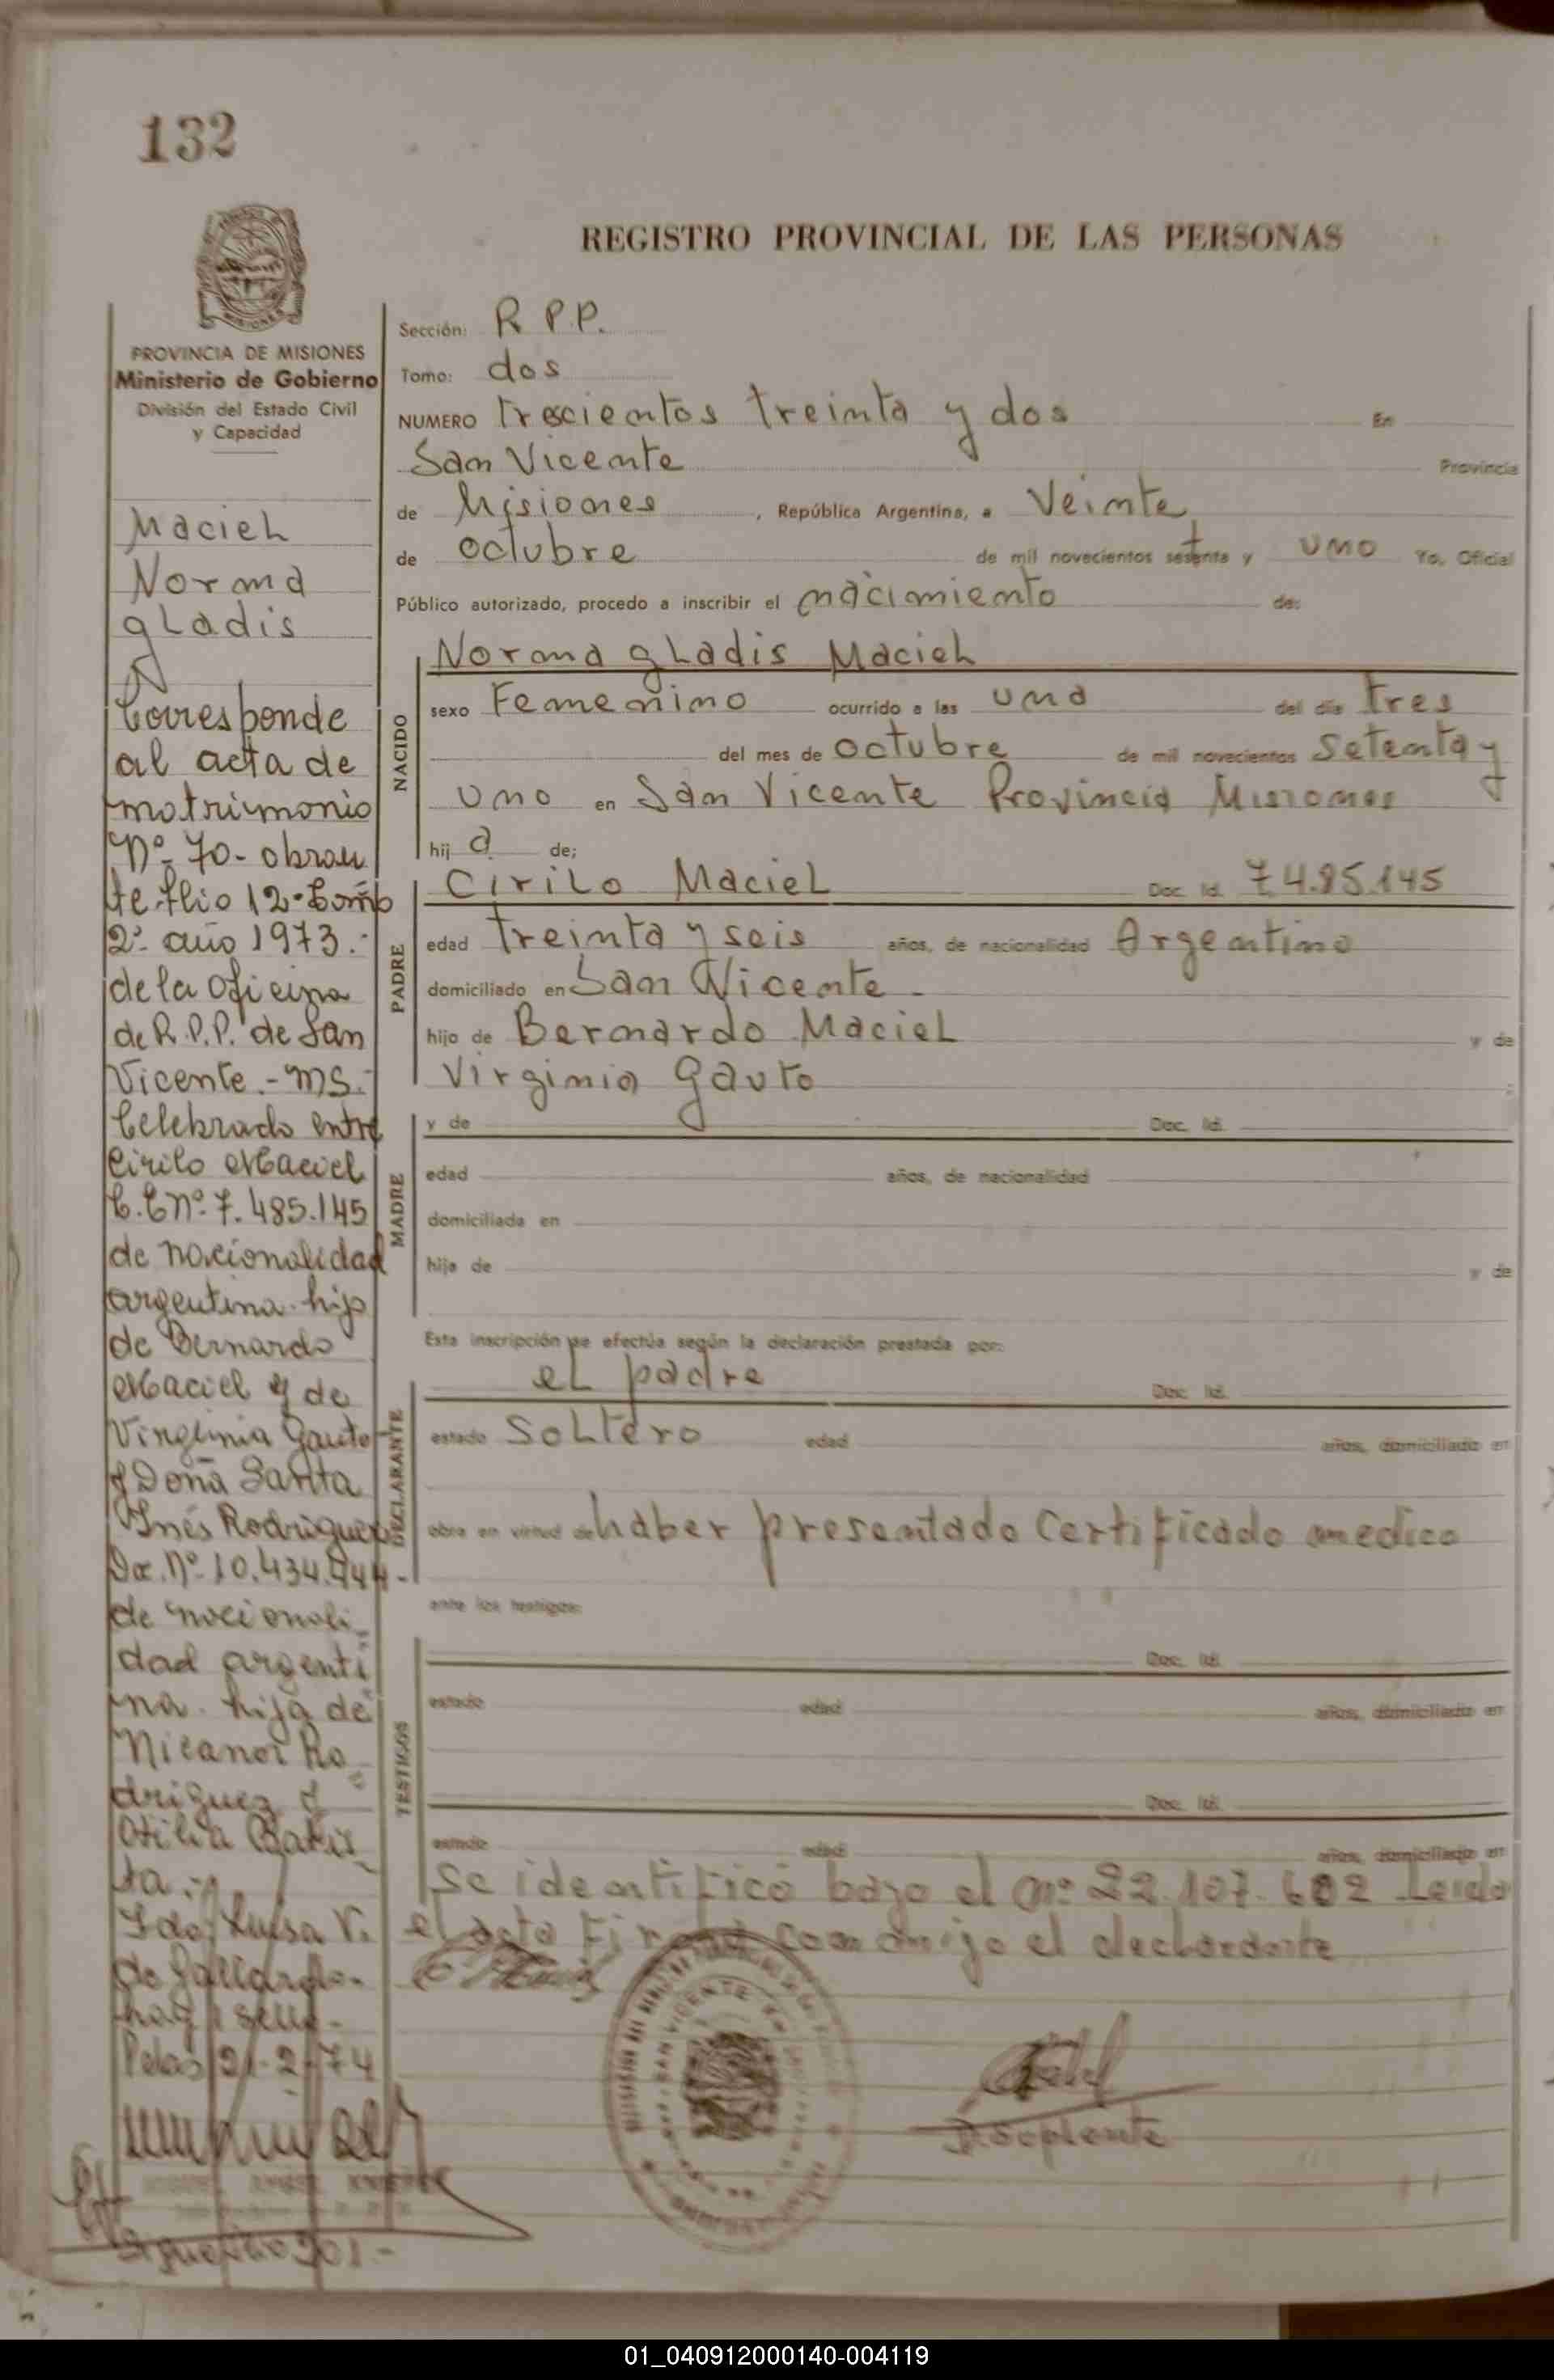 132
REGISTRO PROVINCIAL DE LAS PERSONAS
MISIONES
PROVINCIA DE MISIONES
Ministerio de Gobierno
División del Estado Civil
y Capacidad
Maciel
Norma
gladis
Corresponde
al acta de
matrimonio
Nº 70- obran
te flio 12- Tomo
2º año 1973.-
de la oficina
de R.P.P. de San
Vicente.- MS.-
Celebrado entre
Cirilo Maciel
C.E Nº 7.485.145
de nacionalidad
argentina hijo
de Bernardo
Maciel y de
Virginia Gauto
y Doña Santa
Inés Rodriguez
Doc. Nº 10.434.944-
de nacionali
dad argenti
na. hija de
Nicanor Ro
driguez y
Otilia Batis
ta.-
Fdo. Luisa V.
de Gallardo.
hay 1 sello-
Pdas 21-2-74
Sección: R P.P.
Tomo: dos
NUMERO trescientos treinta y dos En
San Vicente Provincia
de Misiones, República Argentina, a Veinte
de octubre de mil novecientos setenta y uno Yo, Oficial
Público autorizado, procedo a inscribir el nacimiento de:
NACIDO
Norma gladis Maciel
sexo Femenino ocurrido a las una del día tres
del mes de octubre de mil novecientos setenta y
uno en San Vicente Provincia Misiones
hij a de;
PADRE
Cirilo Maciel Doc. Id. 7485.145
edad treinta y seis años, de nacionalidad Argentino
domiciliado en San Vicente-
hijo de Bernardo Maciel y de
Virginia Gauto
MADRE
y de Doc. Id.
edad años, de nacionalidad
domiciliada en
hija de y de
Esta inscripción se efectúa según la declaración prestada por:
DECLARANTE
el padre Doc. Id.
estado Soltero edad años, domiciliado en
obra en virtud de haber presentado Certificado medico
ante los testigos:
TESTIGOS
Doc. Id.
estado edad años, domiciliado en
Doc. Id.
estado edad años, domiciliado en
se identificó bajo el nº 22.107.602 Leido
el acta Firma con migo el declarante
SAN VICENTE
D. Suplente
01_040912000140-004119